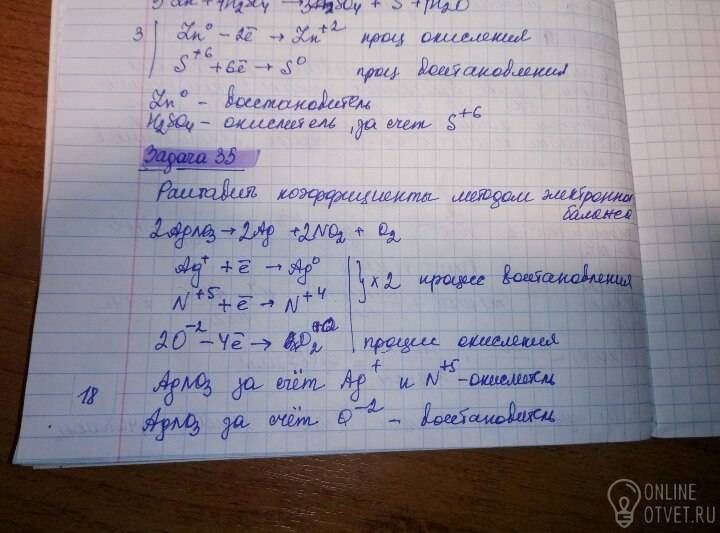 + 4H₂SO₄ → 3ZnSO₄ + S + 4H₂O
3 | Zn⁰ − 2ē → Zn⁺² проц окисления
S⁺⁶ + 6ē → S⁰ проц восстановления
Zn⁰ – восстановитель
H₂SO₄ – окислитель, за счет S⁺⁶
Задача 35
Раставить коэффициенты методом электронно
баланса
2AgNO3 → 2Ag + 2NO₂ + O₂
Ag⁺ + ē → Ag⁰
} x 2 процесс восстановления
N⁺⁵ + ē → N⁺⁴
2O⁻² − 4ē → O₂ процесс окисления
AgNO3 за счёт Ag⁺ и N⁺⁵ – окислитель
18
AgNO3 за счёт O⁻² – восстановитель
ONLINE
OTVET.RU